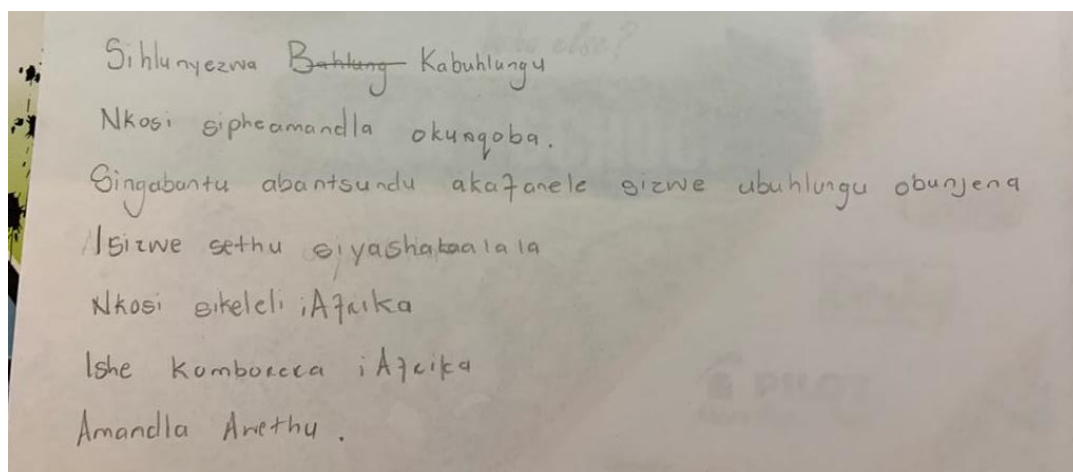 Sihlunyezwa Bahlung Kabuhlungu
Nkosi sipheamandla okunqoba.
Singabantu abantsundu akafanele sizwe ubuhlungu obunjena
Isizwe sethu siyashabalala
Nkosi sikeleli iAfrika
Ishe Komborera iAfrika
Amandla Awethu.